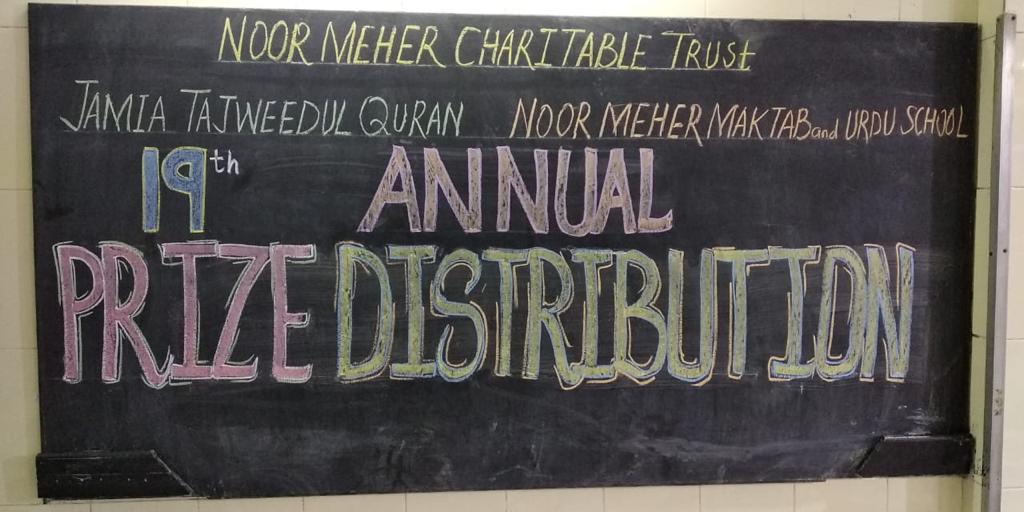 NOOR MEHER CHARITABLE TRUSt
JAMIA TAJWEEDUL QURAN NOOR MEHER MAKTAB and URDU SCHOOL
19th ANNUAL
PRIZE DISTRIBUTION